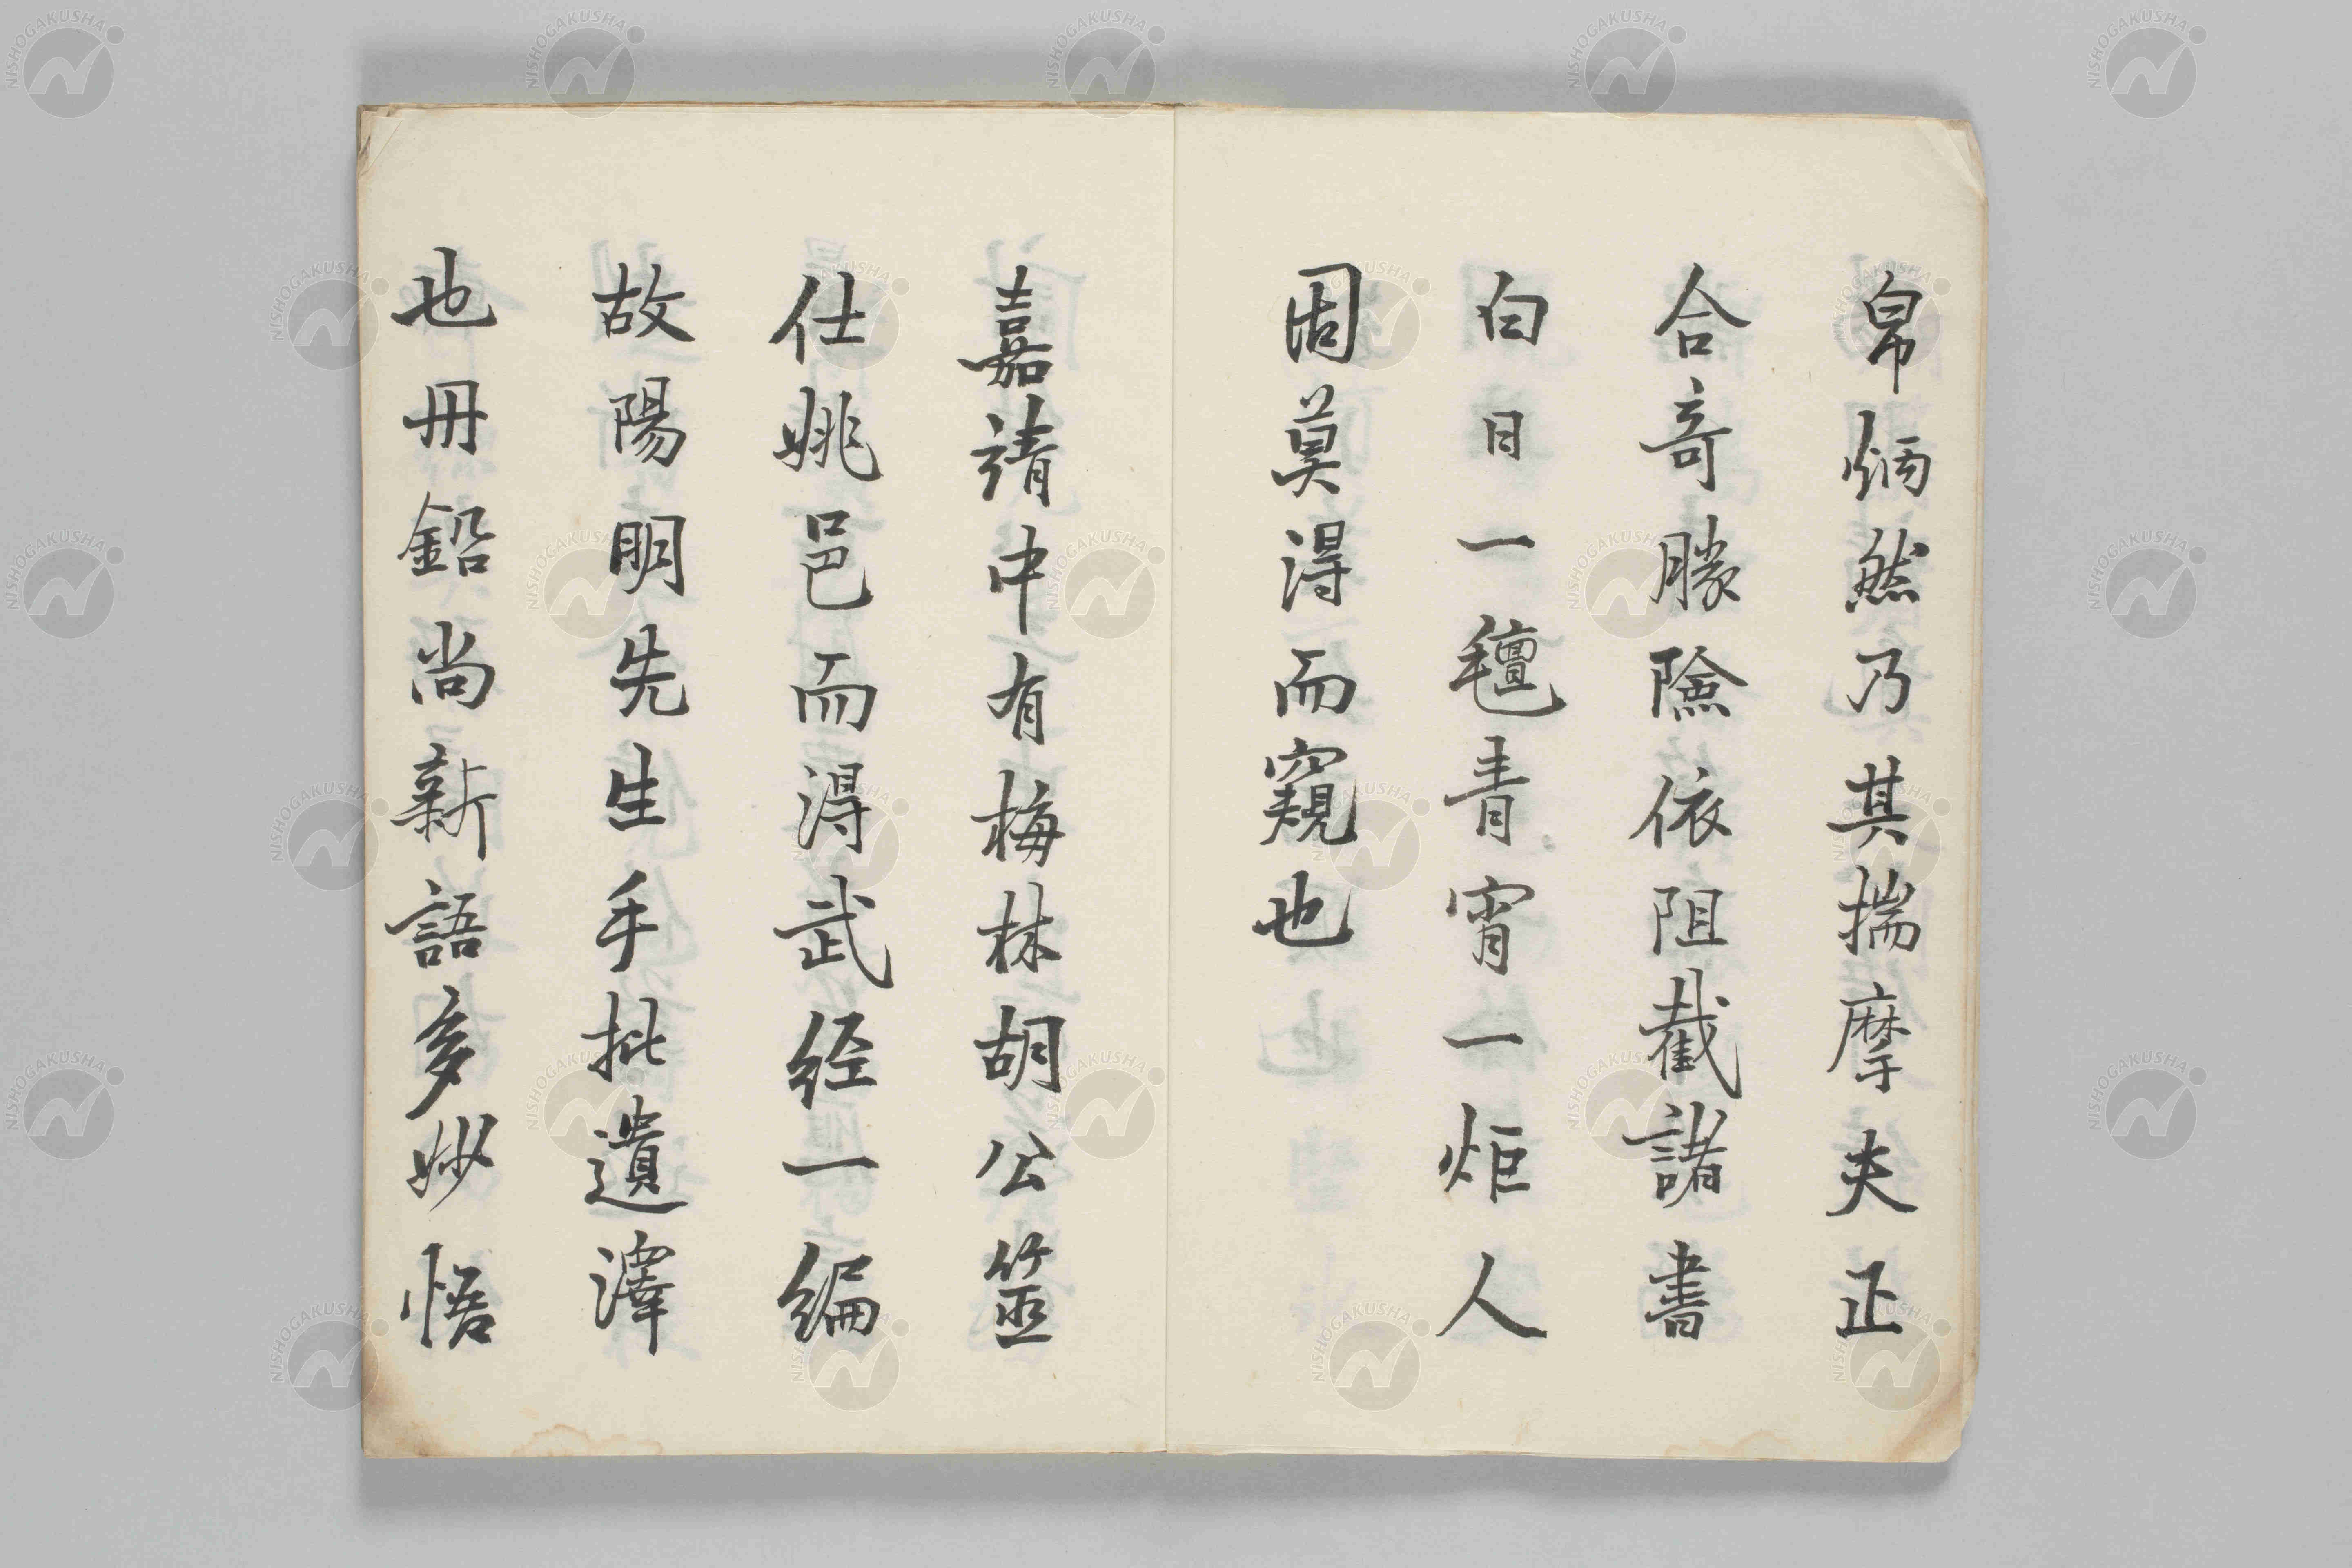 帛炳然乃其揣摩夫正
合奇勝險依阻截諸書
白日一氊青宵一炬人
固莫得而窺也
嘉靖中有梅林胡公筮
仕姚邑而得武经一編
故陽明先生手批遺澤
也丹鉛尚新語多妙悟
NISHOGAKUSHA